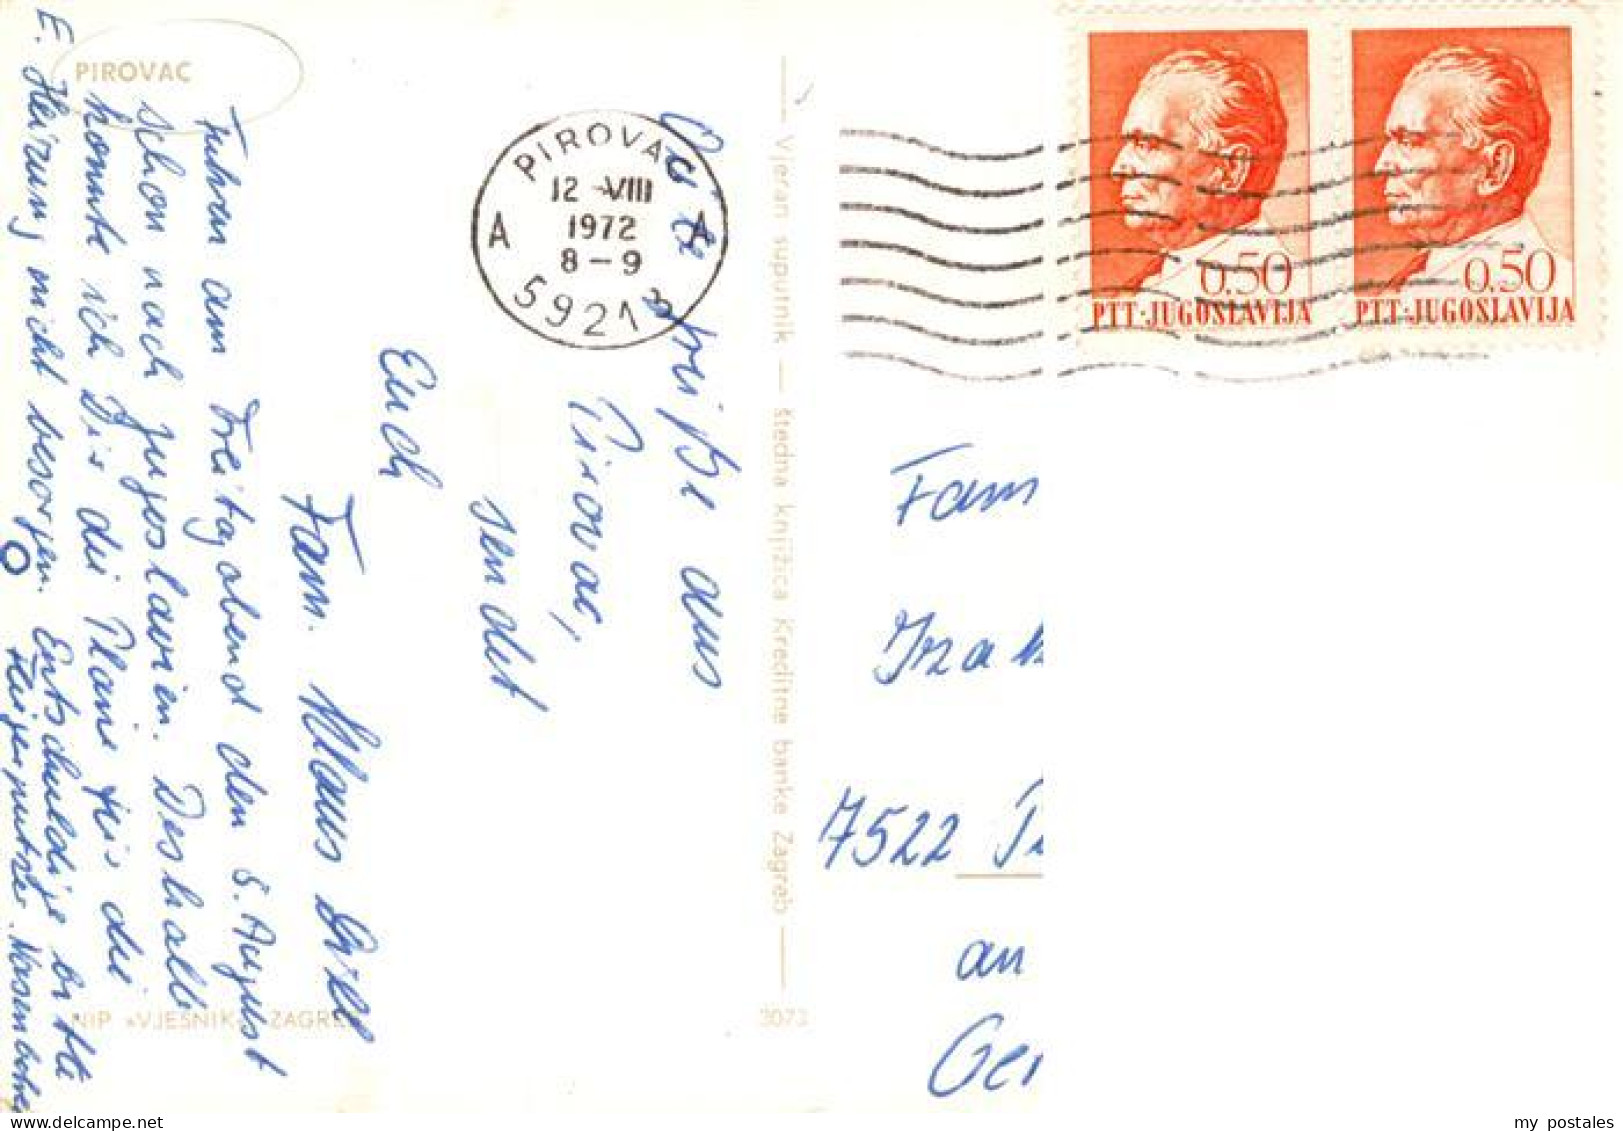 PIROVAC
Gute Grüße aus
Pirovac,
sendet
Euch
Fam. Klaus
Fuhren am Freitagabend den 5. August
schon nach Jugoslavien. Deshalb
konnte ich Dir die Pläne für die
E. Heizung nicht besorgen. Entschuldige bitte
PIROVAC
12 VIII
1972
8-9
A A
59213
Vjeran suputnik — štedna knjižica Kreditne banke Zagreb
NIP »VJESNIK« ZAGREB
3073
0.50
PTT·JUGOSLAVIJA
0.50
PTT·JUGOSLAVIJA
Fam
7522
an
Ger
my postales